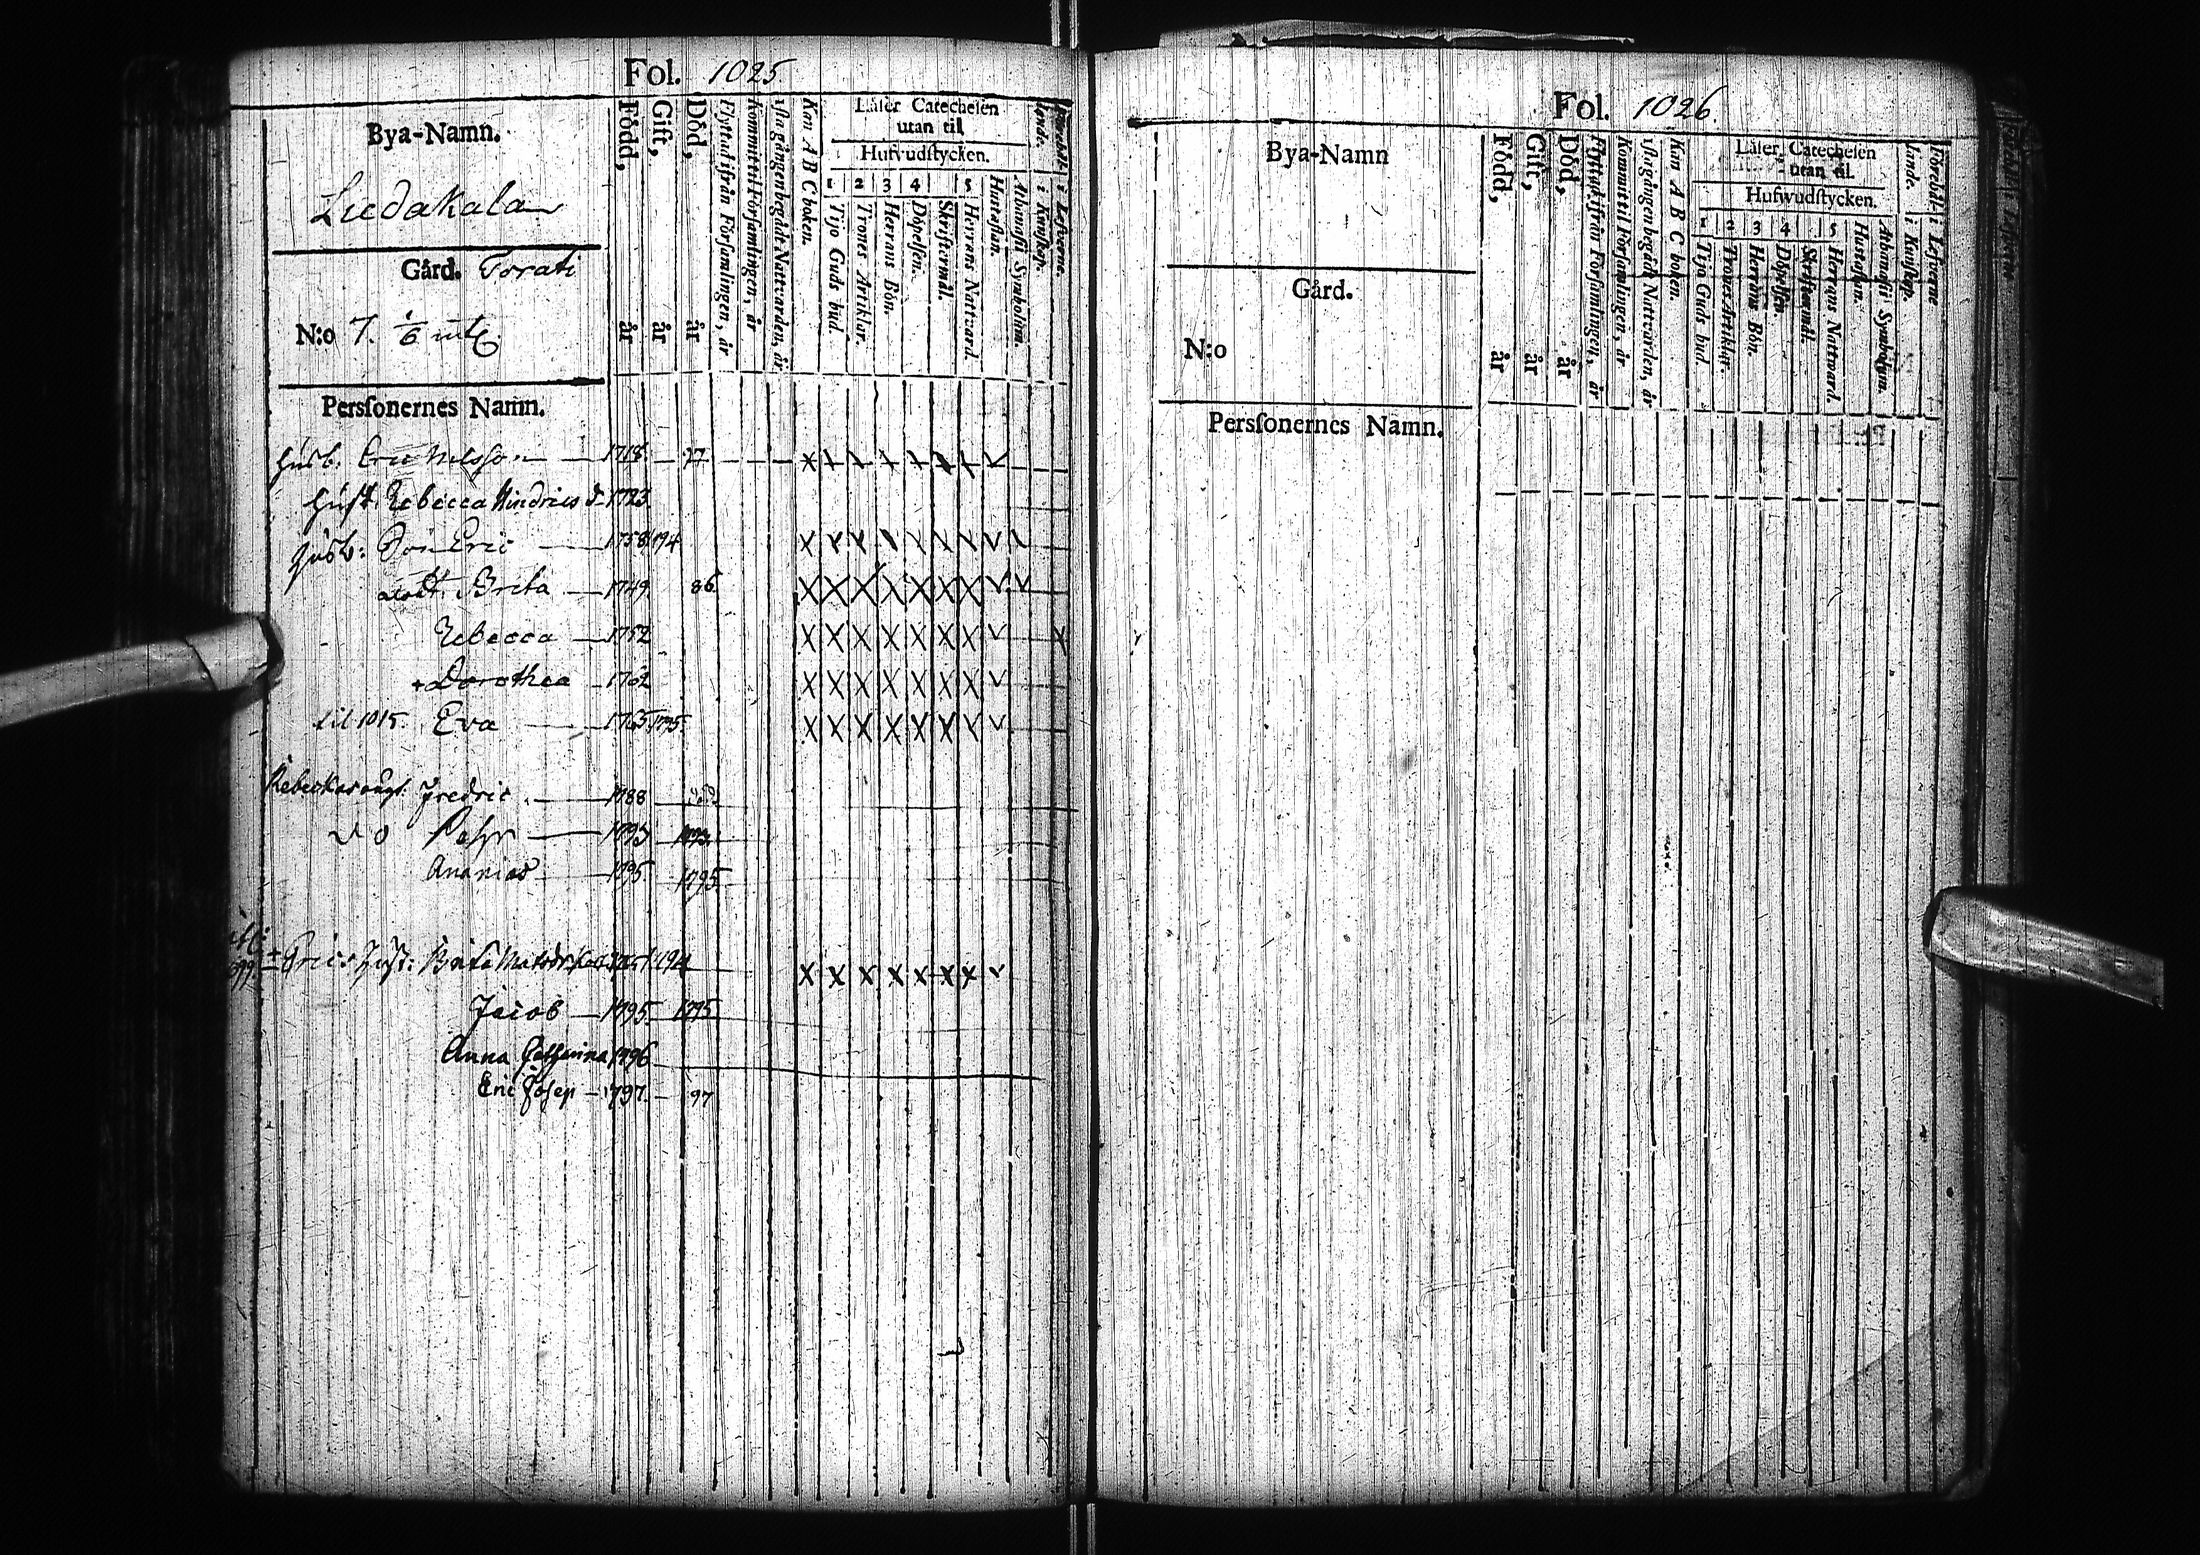 Fol. 1025
Bya-Namn.
Liedakala
Gård. Torati
N:o 7. 1/6 mtl
Perſonernes Namn.
Född, år
Gift, år
Död, år
Flyttad ifrån Förſamlingen, år
Kommit til Förſamlingen, år
1ſta gången begådt Nattvarden, år
Kan A B C boken.
Läſer Catecheſen
utan til
Hufvudſtycken.
1 2 3 4 5
Tijo Guds bud
Trones Artiklar.
Herrans Bön.
Döpelſen.
Skriftermål.
Herrans Nattvard.
Huſtaflan.
Athanaſii Symbolum.
i Kunſkap.
i Lefverne.
Husb. Eric Nilsson 1718. 77
Hust. Rebecca Hindricsd. 1723.
Husb: Son Eric 1758. 194
dott. Brita 1749. 86
Rebecca 1752
+ Dorothea 1762
til 1015. Eva 1765. 1795.
Rebeckas Fredric 1788
do Pehr 1793 1793.
Ananias 1795 1795
Erics hust: Brita
Jacob 1795 1795
Anna Catharina 1796
Eric Josep 1797. 97
Fol. 1026
Bya-Namn
Gård.
N:o
Perſonernes Namn.
Född, år
Gift, år
Död, år
Flyttad ifrån Förſamlingen, år
Kommit til Förſamlingen, år
1ſta gången begådt Nattvarden, år
Kan A B C boken.
Läſer Catecheſen
utan til.
Hufwudſtycken.
1 2 3 4 5
Tijo Guds bud.
Trones Artiklar.
Herrans Bön.
Döpelſen
Skriftermål.
Herrans Nattvard
Huſtaflan.
Athanaſii Symbolum.
Förebråelande.
i Kunſkap.
i Lefverne